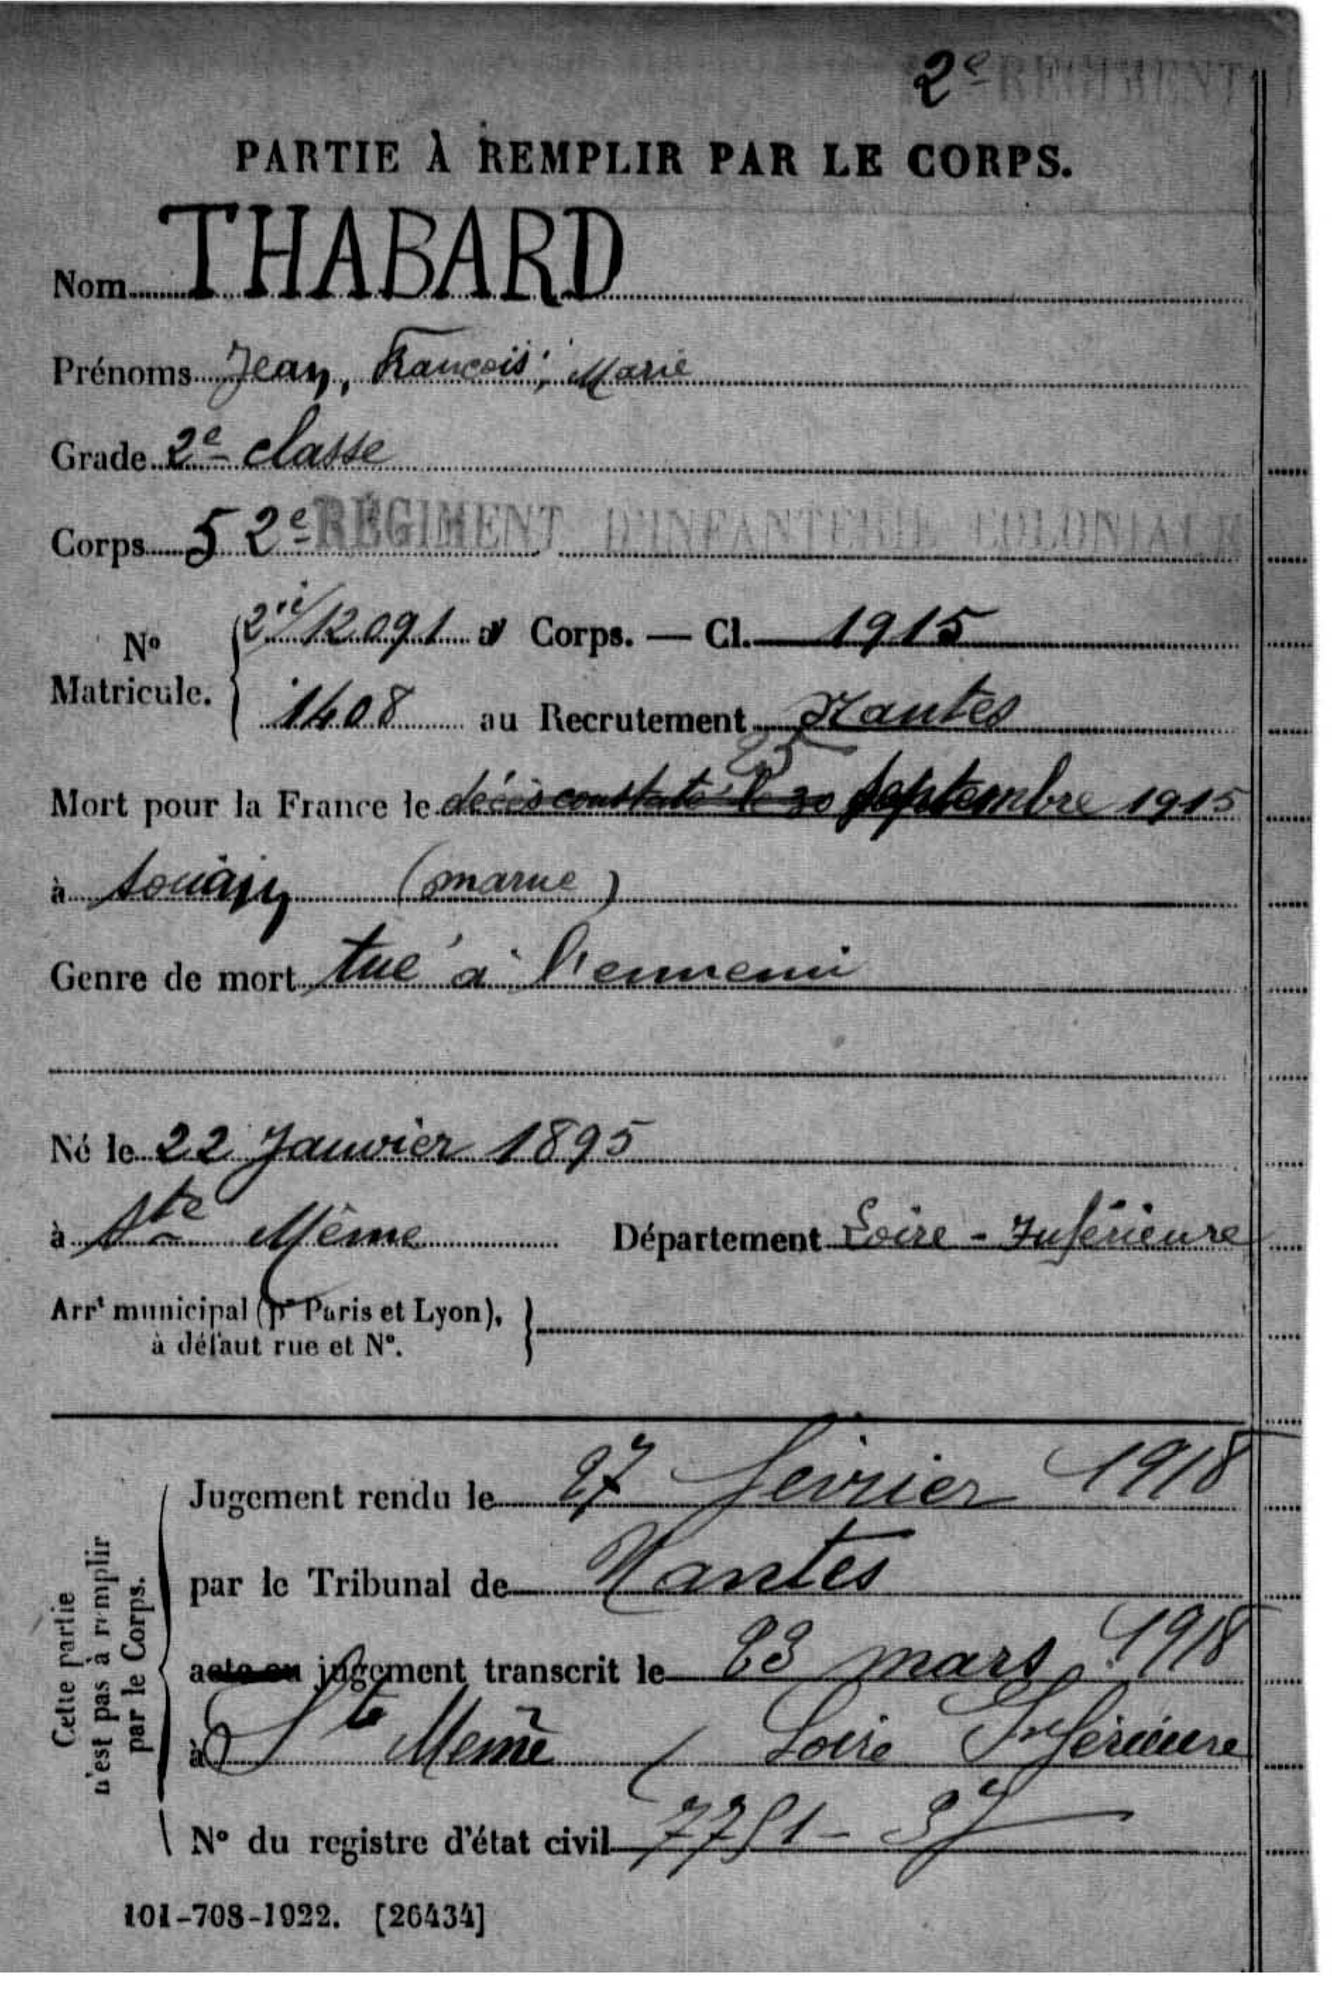 2e REGIMENT
PARTIE À REMPLIR PAR LE CORPS.
Nom THABARD
Prénoms Jean, François, Marie
Grade 2e classe
Corps 52e REGIMENT D'INFANTERIE COLONIALE
No Matricule. 2ie/12091 au Corps. — Cl. 1915
1408 au Recrutement Nantes
25
Mort pour la France le décès constaté le 30 septembre 1915
à Souain (marne)
Genre de mort tué à l'ennemi
Né le 22 Janvier 1895
à Ste Même Département Loire-Inférieure
Arrt municipal (pr Paris et Lyon),
à défaut rue et No.
Cette partie n'est pas à remplir par le Corps.
Jugement rendu le 27 février 1918
par le Tribunal de Nantes
acte ou jugement transcrit le 23 mars 1918
à Ste Même / Loire Inférieure
No du registre d'état civil
101-708-1922. [26434]